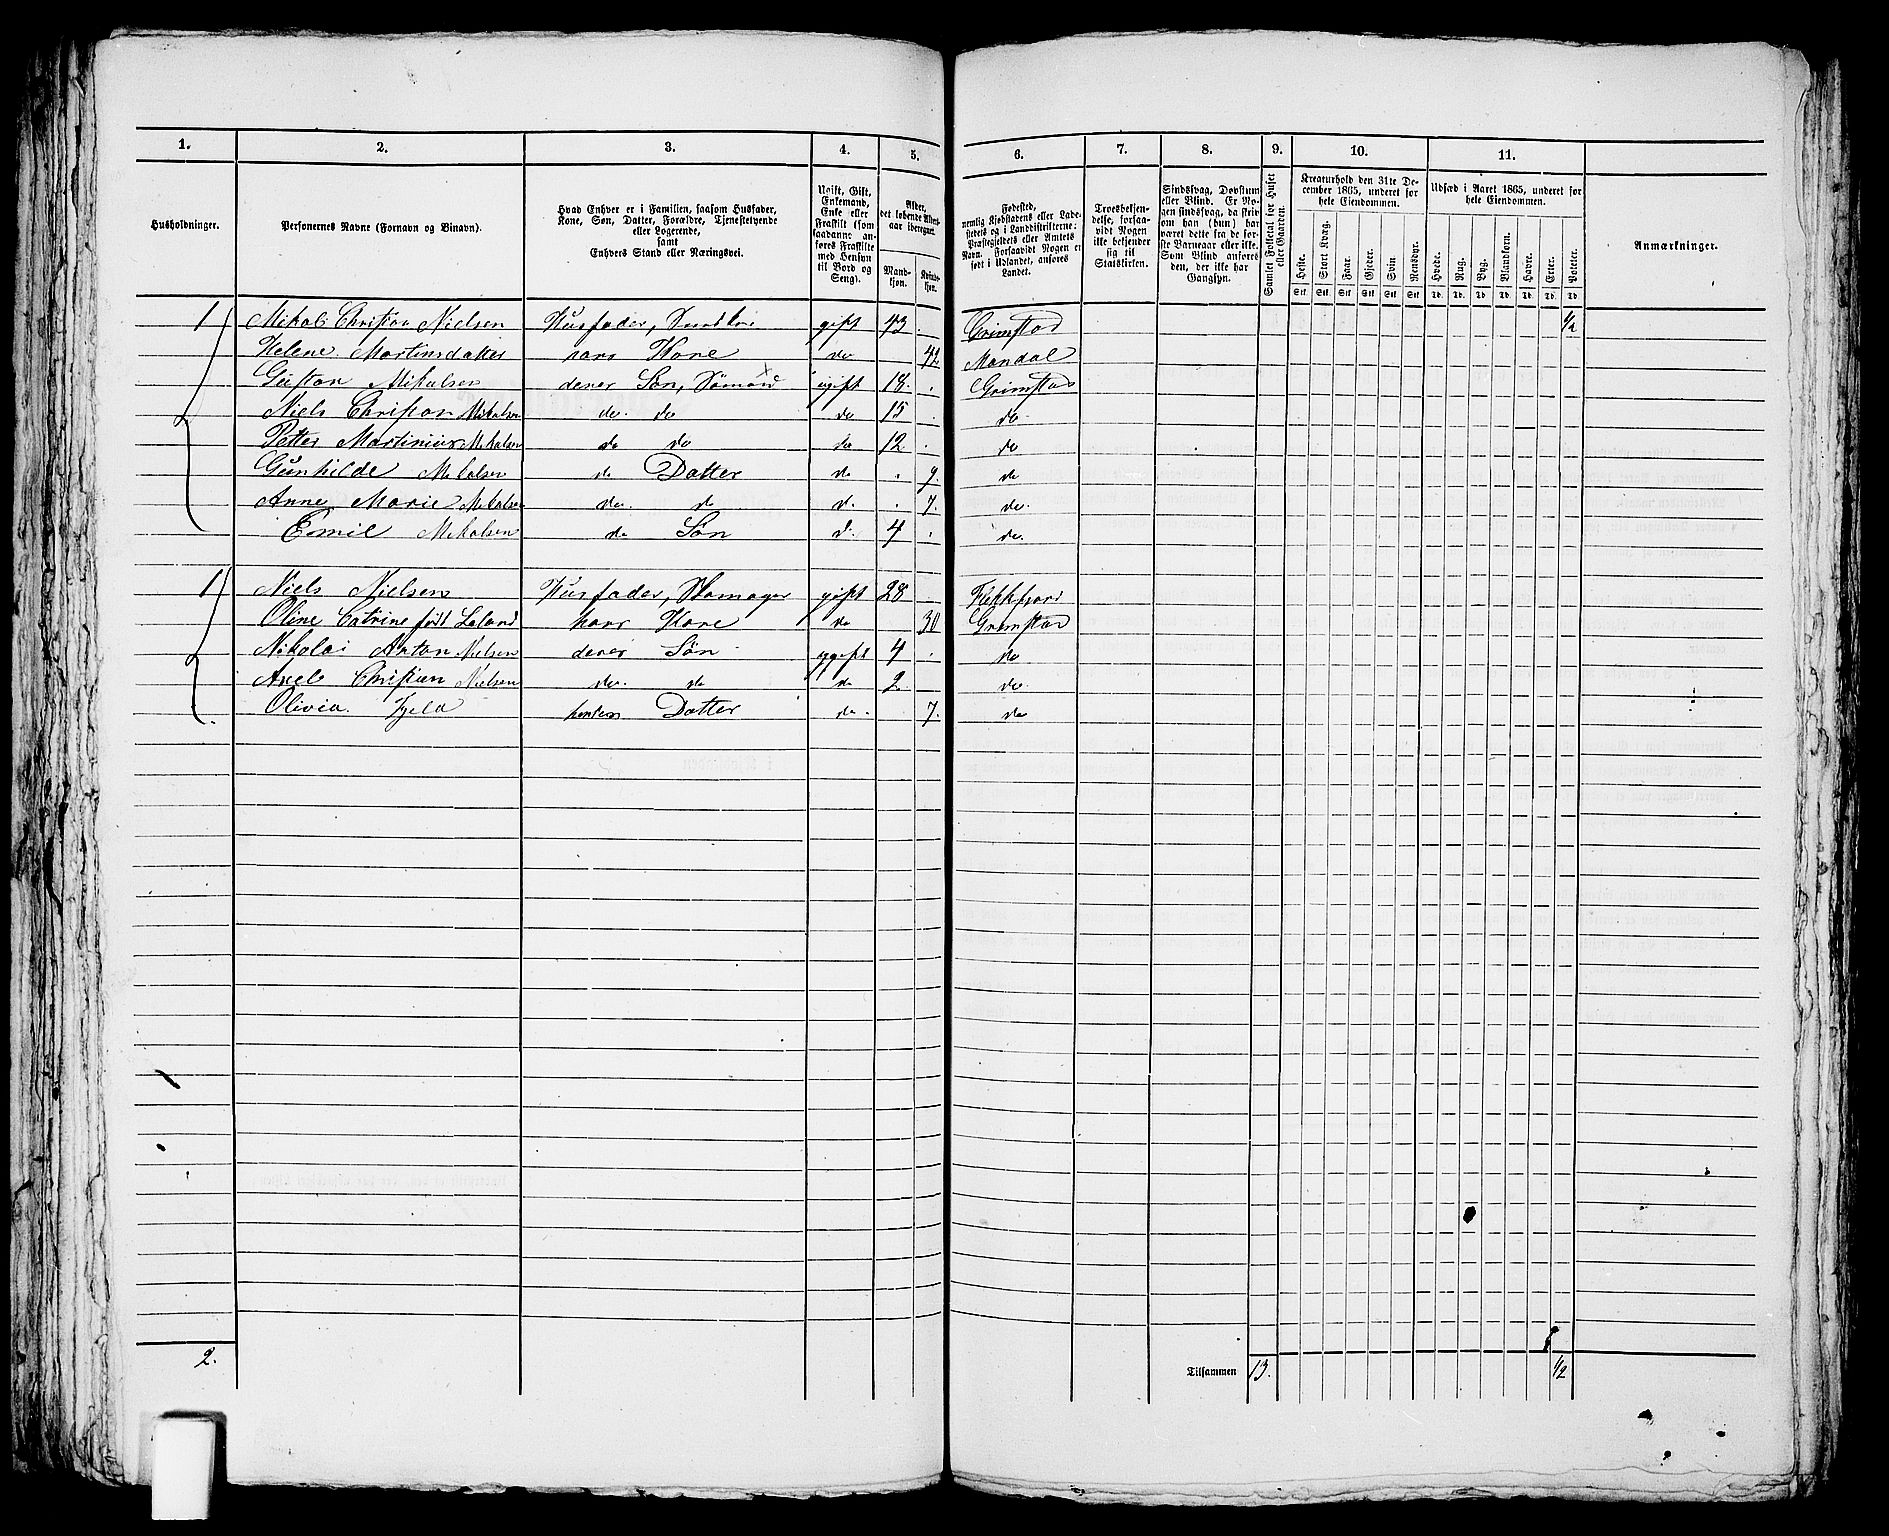 1. 2. 3. 4. 5. 6. 7. 8. 9. 10. 11.
Husholdninger.
Personernes Navne (Fornavn og Binavn).
Hvad Enhver er i Familien, saasom Husfader,
Kone, Søn, Datter, Forældre, Tjenestetyende
eller Logerende,
samt
Enhvers Stand eller Næringsvei.
Ugift, Gift,
Enkemand,
Enke eller
Fraskilt (som
saadanne an-
føres Fraskilte
med Hensyn
til Bord og
Seng).
Alder,
det løbende Alders-
aar iberegnet.
Mand-
kjøn.
Kvinde-
kjøn.
Fødested,
nemlig Kjøbstadens eller Lade-
stedets og i Landdistrikterne:
Præstegjeldets eller Amtets
Navn. Forsaavidt Nogen er
født i Udlandet, anføres
Landet.
Troesbekjen-
delse, forsaa-
vidt Nogen
ikke bekjender
sig til
Statskirken.
Sindssvag, Døvstum
eller Blind. Er No-
gen sindssvag, da skriv
om han (hun) har
været dette fra de før-
ste Barneaar eller ikke.
Som Blind anføres
den, der ikke har
Gangsyn.
Samlet Folketal for Huset
eller Gaarden.
Kreaturhold den 31te De-
cember 1865, underet for
hele Eiendommen.
Heste. Stort Kvæg. Faar. Gjeder. Svin. Rensdyr.
Stk. Stk. Stk. Stk. Stk. Stk.
Udsæd i Aaret 1865, underet for
hele Eiendommen.
Hvede. Rug. Byg. Blandkorn. Havre. Erter. Poteter.
Td. Td. Td. Td. Td. Td. Td.
Anmærkninger.
1 Mikal Christian Nielsen Husfader, gift 43 . Grimstad 1/2
Helene Martinsdatter hans Kone do 42 Mandal
Gustav Mikalsen deres Søn, Sømand ugift 18. . Grimstad
Niels Christian Mikalsen do. do do 15 . do.
Petter Martinius Mikalsen do do do 12. . do
Gunhilde Mikalsen do Datter do . 9. do
Anne Marie Mikalsen do. do d. . 7. do.
Emil Mikalsen do Søn d. 4 . do.
1 Niels Nielsen Husfader, Skomager gift 28 Flekkefjord
Oline Catrine født Leland hans Kone do 30 Grimstad
Nikolai Anton Nielsen deres Søn ugift 4 . do
Axel Christian Nielsen do. do do 2. do
Olivia do Datter do. 7. do
2. Tilsammen 13. 1/2